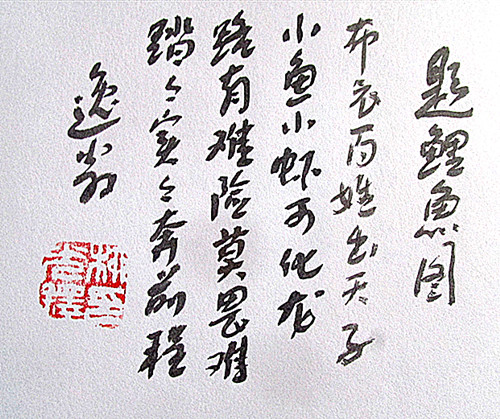 题鲤鱼图
布衣百姓出天子
小鱼小虾可化龙
路有难险莫畏难
踏々实々奔前程
逸